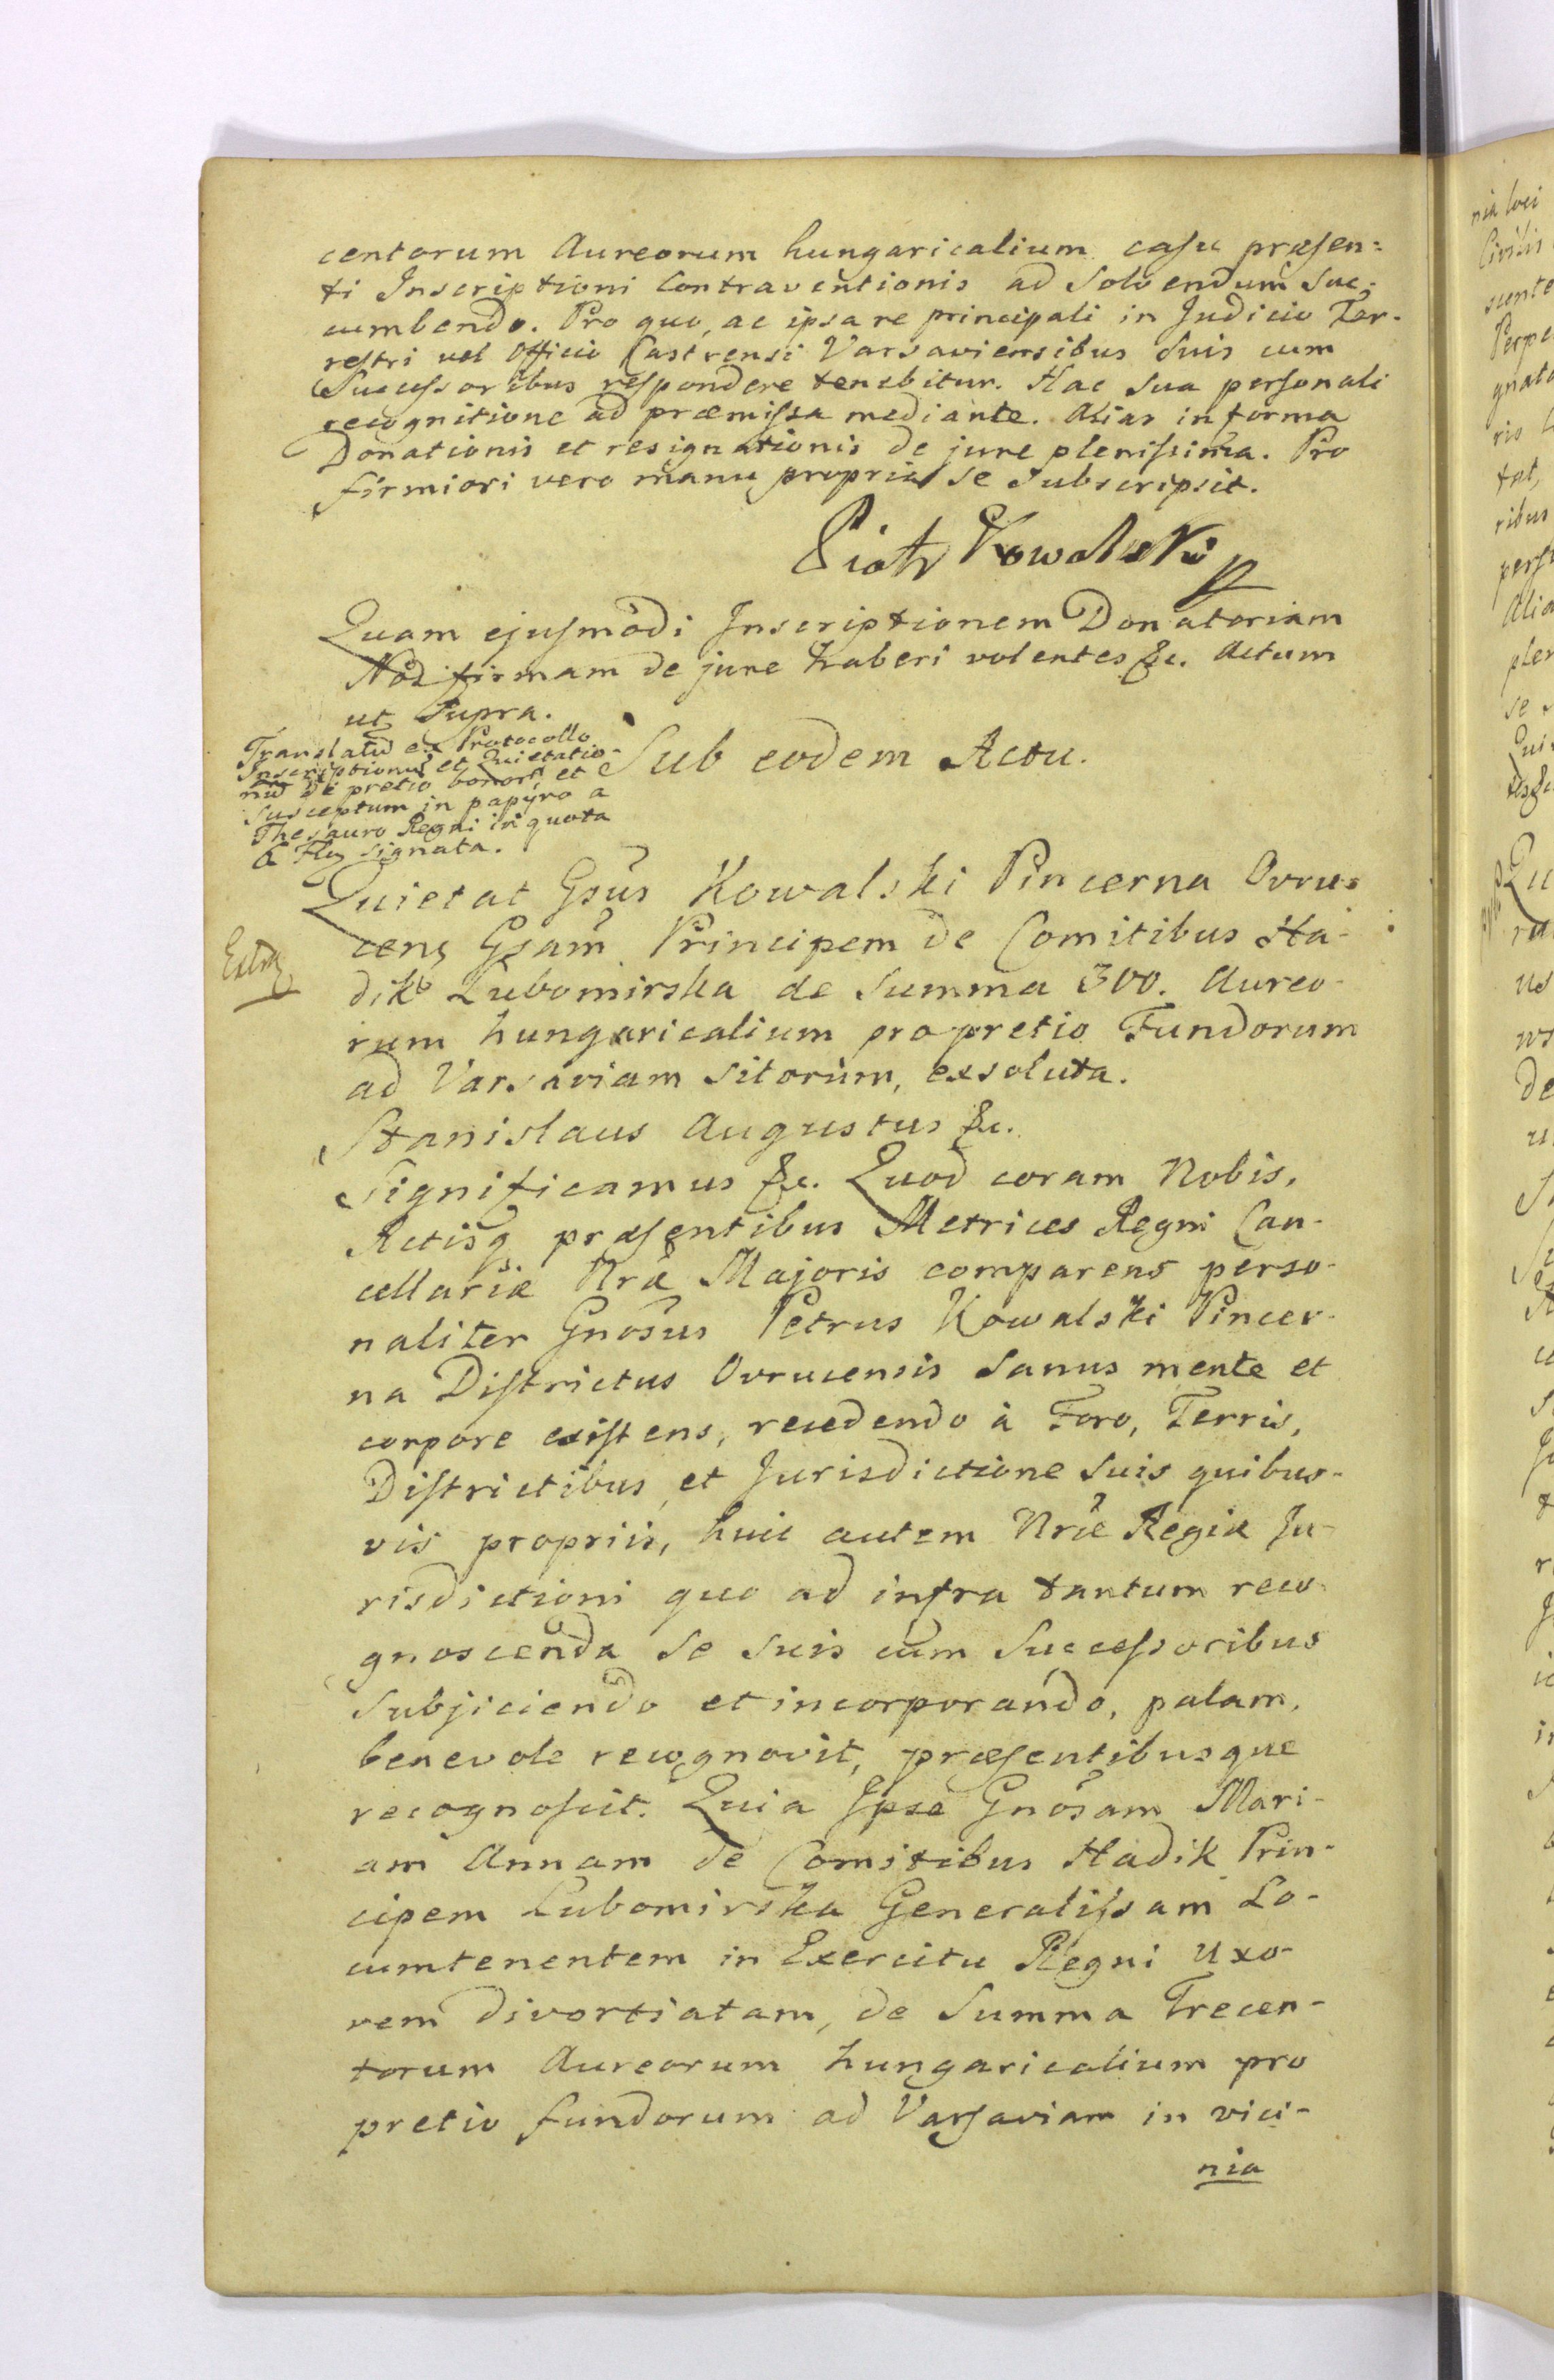 centorum Aureorum hungaricalium casu præsen=
ti Inscriptioni Contraventionis ad Solvendum Suc=
cumbendo. Pro quo, ac ipsa re principali in Judicio Ter-
restri vel Officio Castrensi Varsaviensibus Suis cum
Successoribus respondere tenebitur. Hac Sua personali
recognitione ad præmissa mediante. Alias in forma
Donationis et resignationis de jure plenissima. Pro
firmiori vero manu propria se Subscripsit.
Piotr Kowalski
Quam ejusmodi Inscriptionem Donatoriam
Nos firmam de jure haberi volentes &c. Actum
ut Supra.
Translatū ex Protocollo
Inscriptionū et Quietatio-
nū de pretio bonorū et
Susceptum in papyro a
Thesauro Regni in quota
a Flg signata.
Sub eodem Actu.
Quietat Gsūs Kowalski Pincerna Ovru=
cens Gsam̃ Principem de Comitibus Ha-
dik Lubomirska de Summa 300. Aureo-
rum hungaricalium pro pretio Fundorum
ad Varsaviam Sitorum, exsoluta.
Extra
Stanislaus Augustus &c.
Significamus &c. Quod coram Nobis,
Actisq præsentibus Metrices Regni Can-
cellariæ Nræ Majoris comparens perso-
naliter Gnosus Petrus Kowalski Pincer-
na Districtus Ovrucensis Sanus mente et
corpore existens, recedendo à Foro, Terris,
Districtibus et Jurisdictione Suis quibus-
vis propriis, huic autem Nræ Regiæ Ju-
risdictioni quo ad infra tantum reco-
gnoscenda Se Suis cum Successoribus
Subjiciendo et incorporando, palam,
benevole recognovit, præsentibusque
recognoscit. Quia Ipse Gnosam Mari-
am Annam de Comitibus Hadik Prin-
cipem Lubomirska Generalissam Lo-
cumtenentem in Exercitu Regni Uxo-
rem divortiatam, de Summa Trecen-
torum Aureorum hungaricalium pro
pretio fundorum ad Varsaviam in vici-
nia